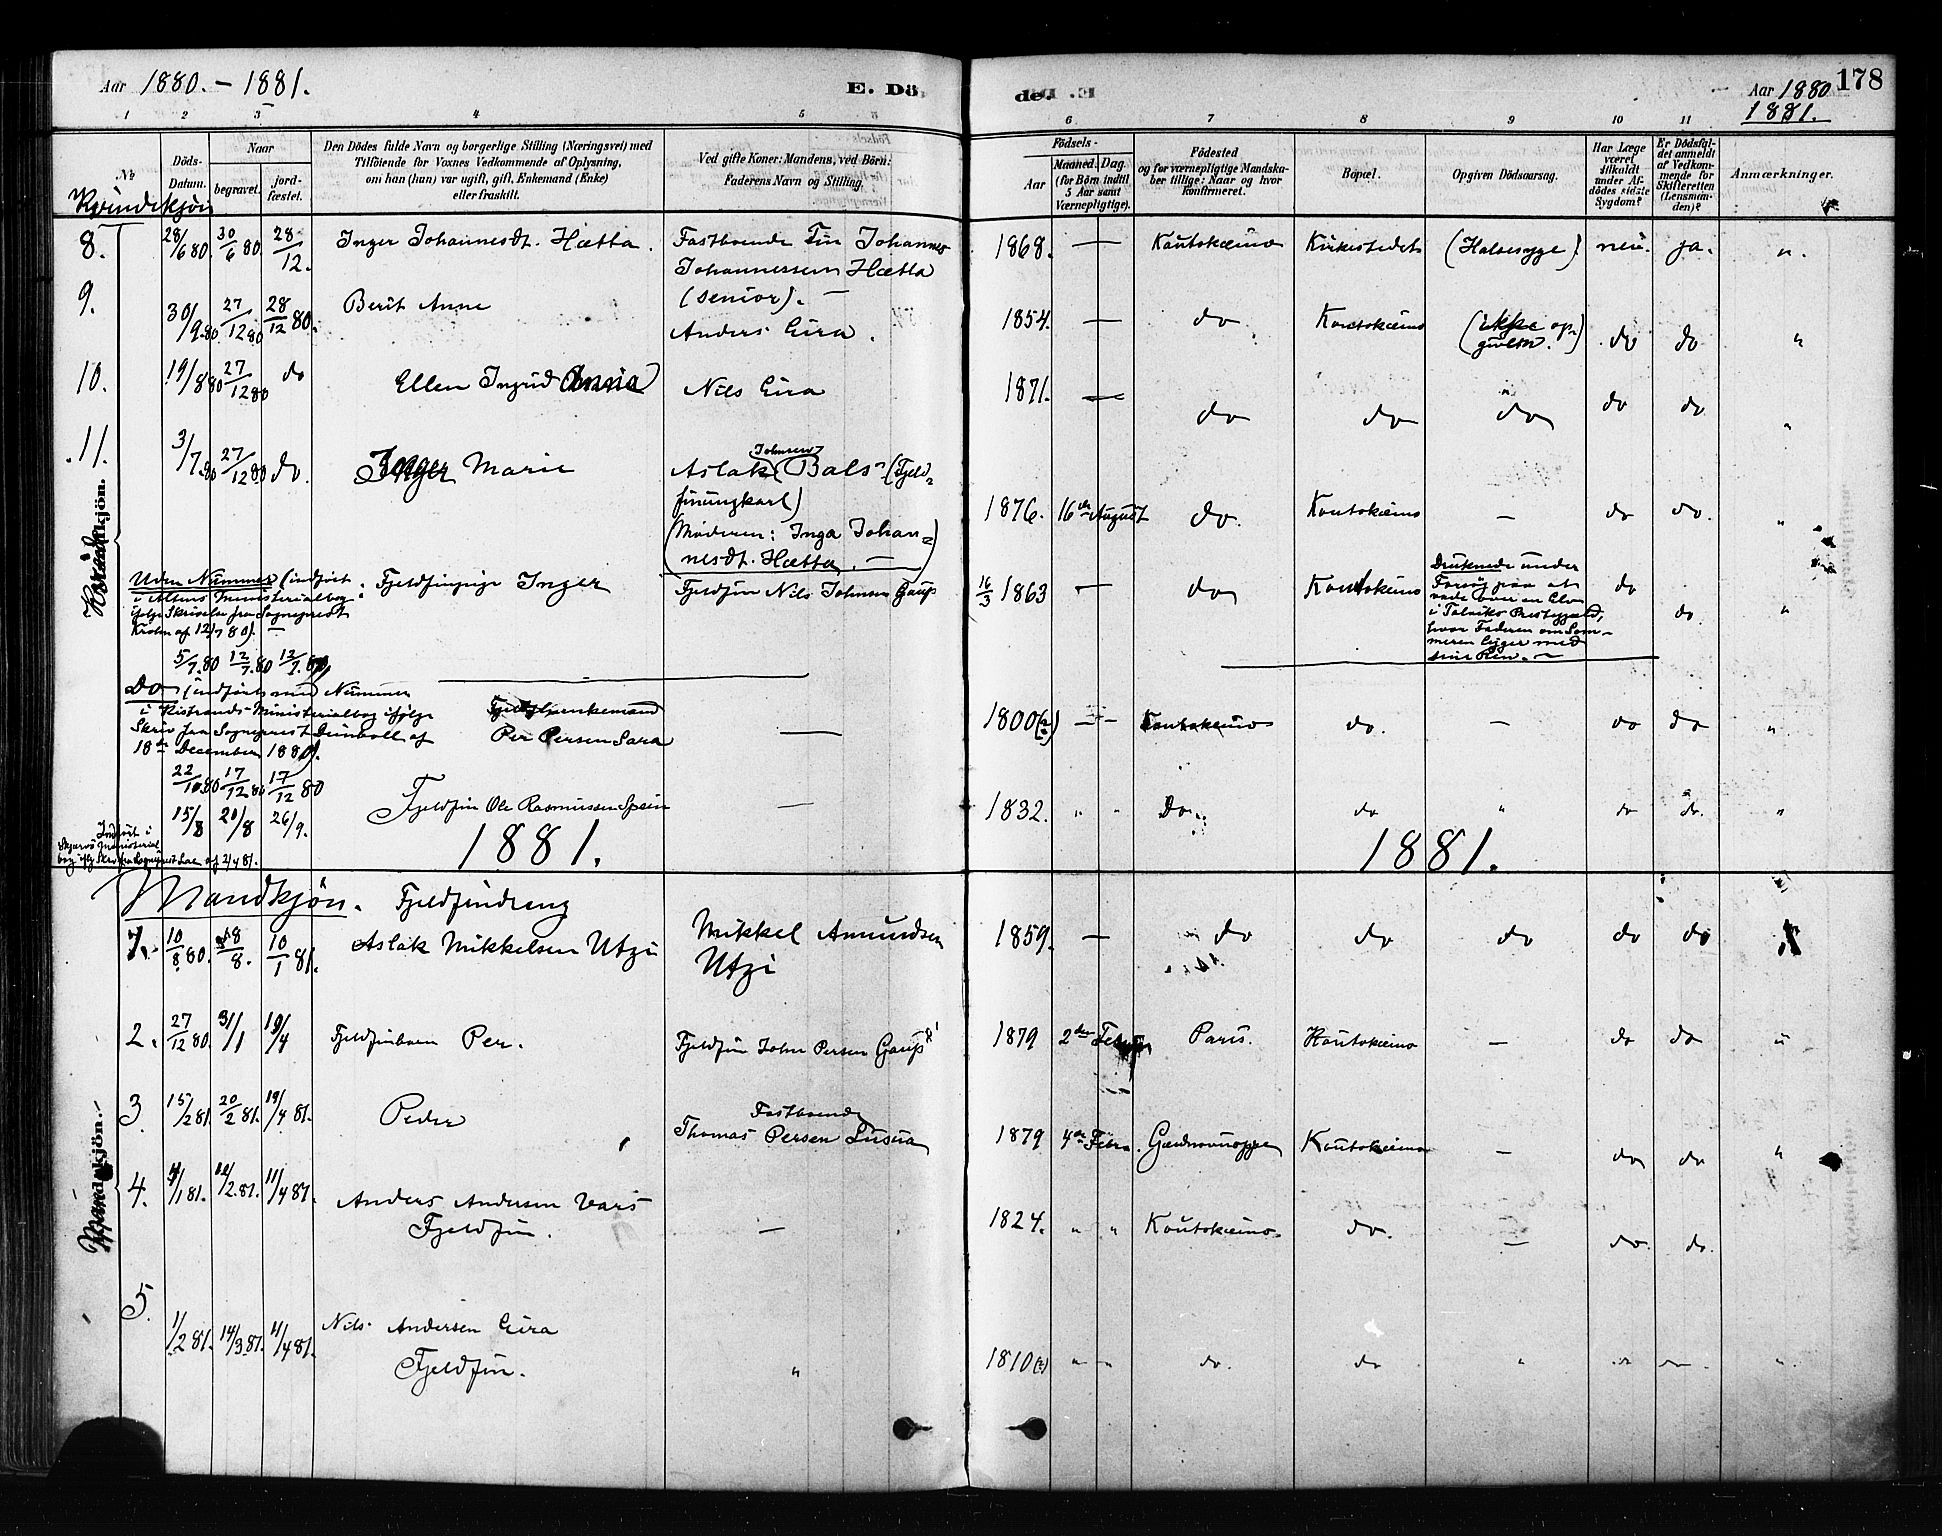 Aar 1880. - 1881.
E. Dö
de.
Aar 1880
1881.
178
1 2 3 4 5 6 7 8 9 10 11
No
Döds-Datum.
Naar
begravet.
jord-fæstet.
Den Dödes fulde Navn og borgerlige Stilling (Næringsvei) med
Tilföiende for Voxnes Vedkommende af Oplysning,
om han (hun) var ugift, gift, Enkemand (Enke)
eller fraskilt.
Ved gifte Koner: Mandens, ved Börn:
Faderens Navn og Stilling.
Födsels-
Aar
Maaned. Dag.
(for Börn indtil
5 Aar samt
Værnepligtige).
Födested
og for værnepligtige Mandska-
ber tillige: Naar og hvor
konfirmeret.
Bopæl.
Opgiven Dödsaarsag.
Har Læge
været
tilkaldt
under Af-
dödes sidste
Sygdom?
Er Dödsfal-
det anmeldt
af Vedkom-
mende for
Skifteretten
(Lensman-
den)?
Anmærkninger.
Kvindekjön
8. 28/6 80 30/6 80 28/12. Inger Johannesdt. Hætta. Fastboende Fin Johannes
Johannessen Hætta
(senior). —
1868. — Koutokæino Kirkestedet (Halsesyge). nei. ja. "
9. 30/9 80 27/12 80 28/12 80. Berit Anne Anders Eira. 1854. — do Koutokæino (ikke op-
given.) do do "
10. 19/8 80 27/12 80 do Ellen Ingrid Anna Nils Eira 1871. — do do do do do "
11. 3/7 80 27/12 80 do. Inger Marie Johnsen
Aslak (Bals- (Fjeld-
finungkarl)
(Moderen: Inga Johan-
nesdt. Hætta. —)
1876. 16de August do. Koutokæino — do do. "
Kvindekjön.
Uden Nummer (indført
i Altens Ministerialbog
ifølge Skrivelse fra Sogneprest
Krohn af 12/7 80). —
Fjeldfinpige Inger Fjeldfin Nils Johnsen Gaup 16/3 1863 — do Koutokeino
Druknede under
Forsøg paa at
vade over en Elv
i Talviks Prestegjeld,
hvor Faderen om Som-
meren ligger med
sine Ren. —
do do. "
5/7 80 12/7 80 12/7 80
Do (indført med Nummer
i Kistrands Ministerialbog ifølge
Skriv. fra Sogneprest af
18de December 1880).
Fjeldfinenkemand
Per Persen Sara — 1800(?) — — Koutokæino do. — do do "
22/10 80 17/12 80 17/12 80
15/8 20/8 26/9. Fjeldfin Ole Rasmussen Spein — 1832. " " Do. do " do do. "
Indført i
Skjervø Ministerial
bog ifølg Skr. fra Sogneprest af 2/4 81.
1881. 1881.
Mandkjön.
1. 10/8 80. 18/8. 10/1 81. Fjeldfindreng
Aslak Mikkelsen Utzi Mikkel Amundsen
Utzi 1859. — do do do do do
2. 27/12 80 31/1 19/4 Fjeldfinbarn Per. Fjeldfin John Persen Gaup 1879 2den Febr Paris. Koutokæino — do do "
3. 15/2 81. 20/2 81. 19/4 81. Peder Fastboende
Thomas Persen 1879 4de Febr. Koutokæino — do do "
Mandskjön.
4. 4/1 81. 12/2 81. 11/4 81. Anders Andersen Vars
Fjeldfin. — 1824. " " Koutokæino. do. — do. do.
5. 1/2 81. 14/3 81. 11/4 81. Nils Andersen Eira
Fjeldfin. " 1810(?) " " do. do " do do "